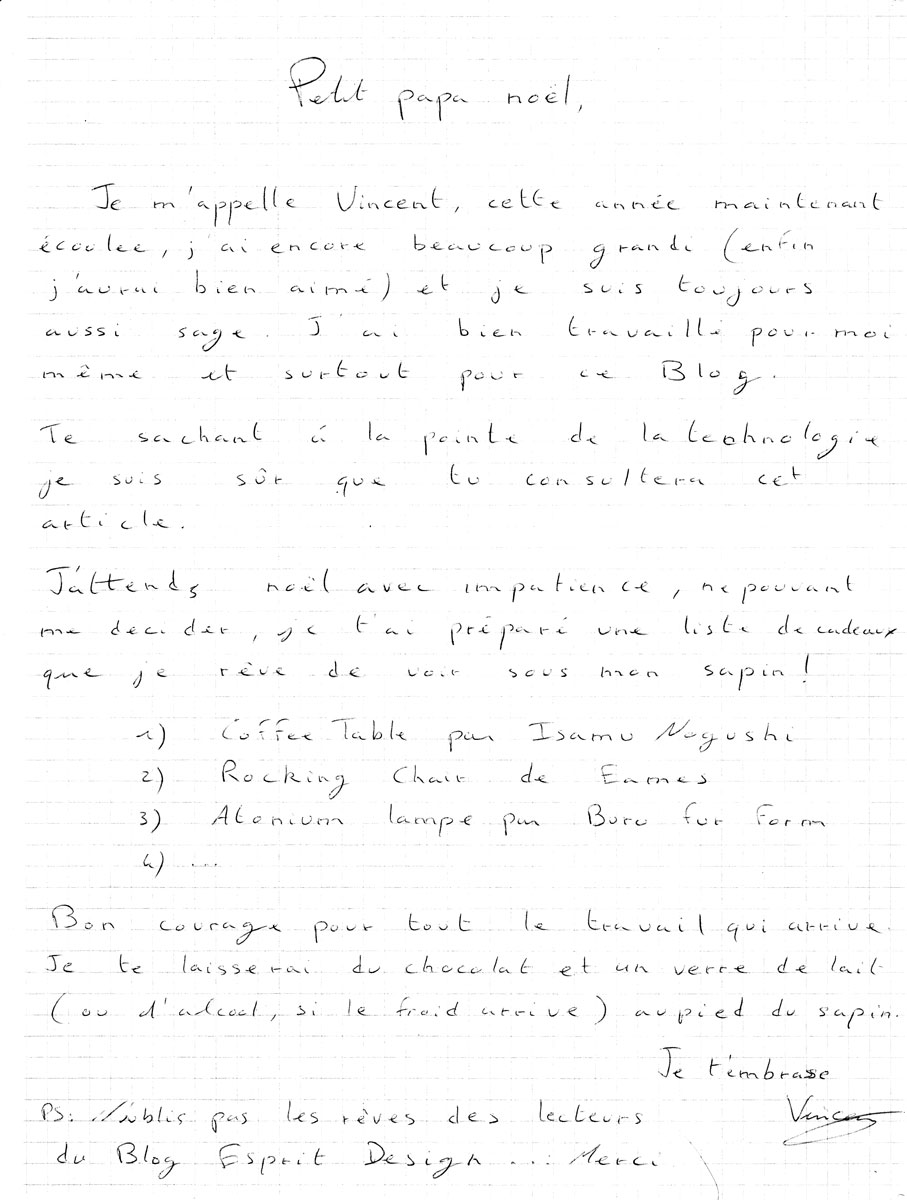 Petit papa noël,
Je m'appelle Vincent, cette année maintenant
écoulée, j'ai encore beaucoup grandi (enfin
j'aurai bien aimé) et je suis toujours
aussi sage. J'ai bien travaillé pour moi
même et surtout pour ce Blog.
Te sachant à la pointe de la technologie
je suis sûr que tu consultera cet
article.
J'attends noël avec impatience, ne pouvant
me décider, je t'ai préparé une liste de cadeaux
que je rêve de voir sous mon sapin!
1) Coffee Table par Isamu Nogushi
2) Rocking Chair de Eames
3) Atonium lampe par Buro fur Form
4) ...
Bon courage pour tout le travail qui arrive.
Je te laisserai du chocolat et un verre de lait
(ou d'alcool, si le froid arrive) au pied du sapin.
Je t'embrasse
PS: N'oublis pas les rêves des lecteurs
Vincent
du Blog Esprit Design ... Merci